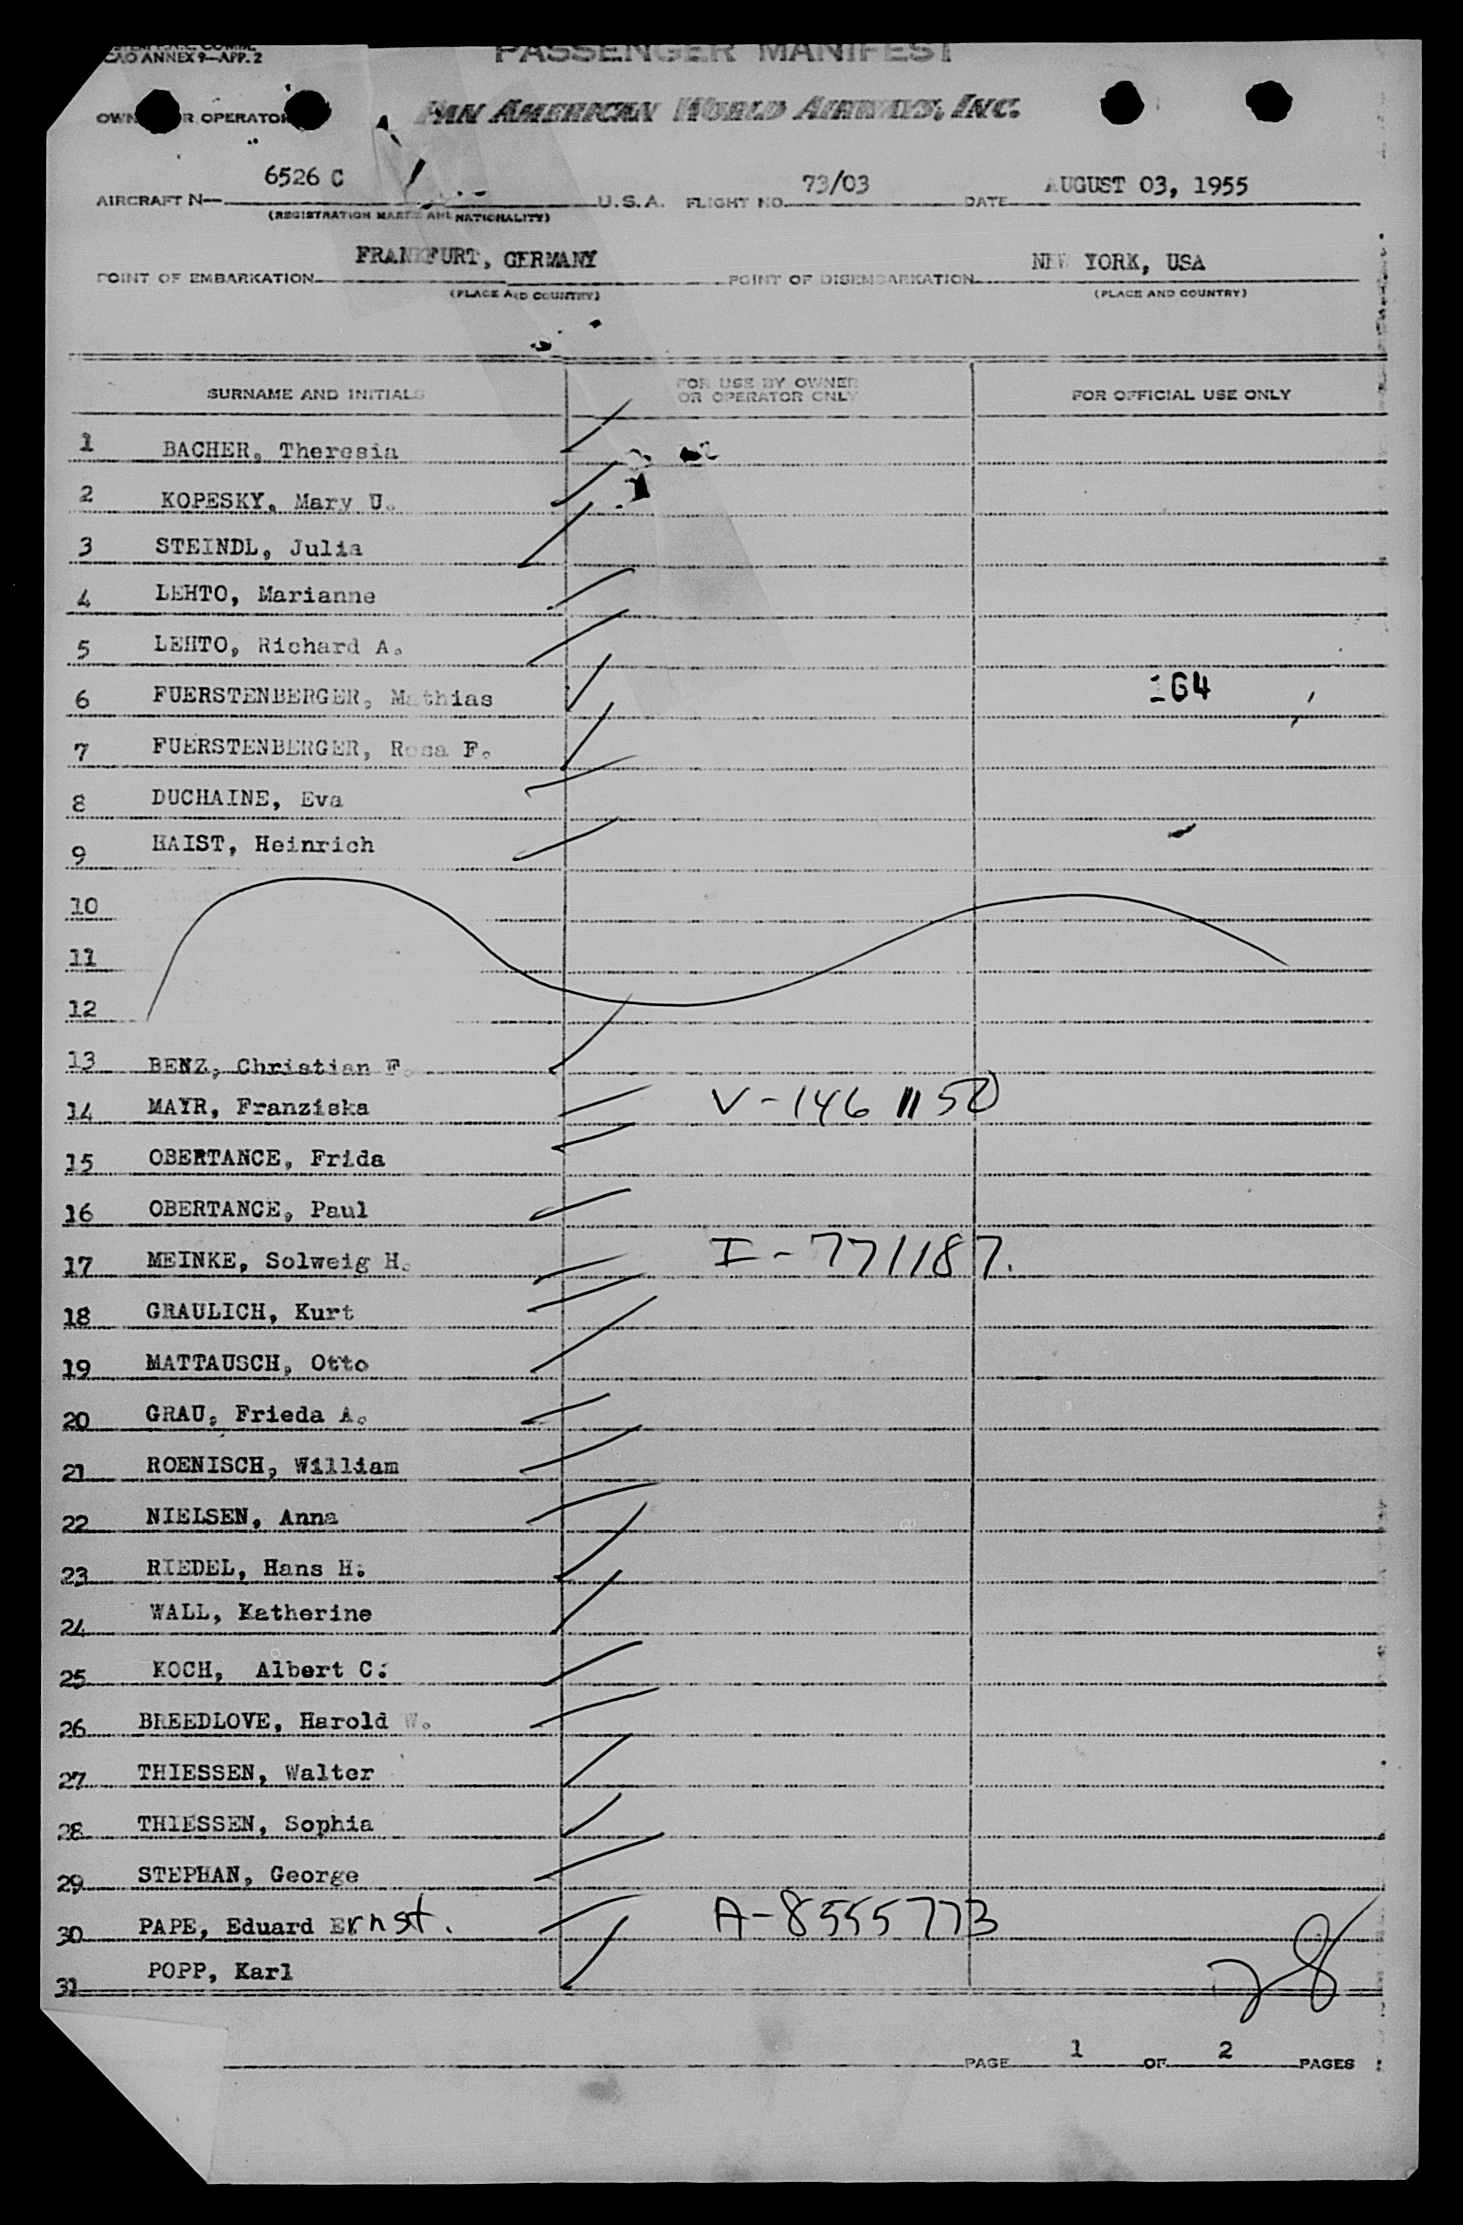 CAO ANNEX 9—APP. 2
PASSENGER MANIFEST
OWNER OR OPERATOR
PAN AMERICAN WORLD AIRWAYS, INC.
AIRCRAFT N— 6526 C U.S.A. FLIGHT NO. 73/03 DATE AUGUST 03, 1955
(REGISTRATION MARKS AND NATIONALITY)
POINT OF EMBARKATION FRANKFURT, GERMANY POINT OF DISEMBARKATION NEW YORK, USA
(PLACE AND COUNTRY) (PLACE AND COUNTRY)
SURNAME AND INITIALS FOR USE BY OWNER OR OPERATOR ONLY FOR OFFICIAL USE ONLY
1 BACHER, Theresia
2 KOPESKY, Mary U.
3 STEINDL, Julia
4 LEHTO, Marianne
5 LEHTO, Richard A.
6 FUERSTENBERGER, Mathias 164
7 FUERSTENBERGER, Rosa F.
8 DUCHAINE, Eva
9 HAIST, Heinrich
10
11
12
13 BENZ, Christian F.
14 MAYR, Franziska V-146 1150
15 OBERTANCE, Frida
16 OBERTANCE, Paul
17 MEINKE, Solweig H. I-771187.
18 GRAULICH, Kurt
19 MATTAUSCH, Otto
20 GRAU, Frieda A.
21 ROENISCH, William
22 NIELSEN, Anna
23 RIEDEL, Hans H.
24 WALL, Katherine
25 KOCH, Albert C.
26 BREEDLOVE, Harold W.
27 THIESSEN, Walter
28 THIESSEN, Sophia
29 STEPHAN, George
30 PAPE, Eduard Ernst. A-8555773
31 POPP, Karl
28
PAGE 1 OF 2 PAGES